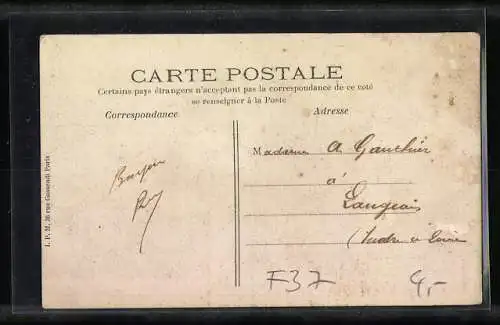 CARTE POSTALE
Certains pays étrangers n'acceptent pas la correspondance de ce coté
se renseigner à la Poste
Correspondance
Adresse
I. P. M. 36 rue Gassendi Paris
Bonjour
Madame A Gauthier
à
Langeais
(Indre et Loire
F37
4,-